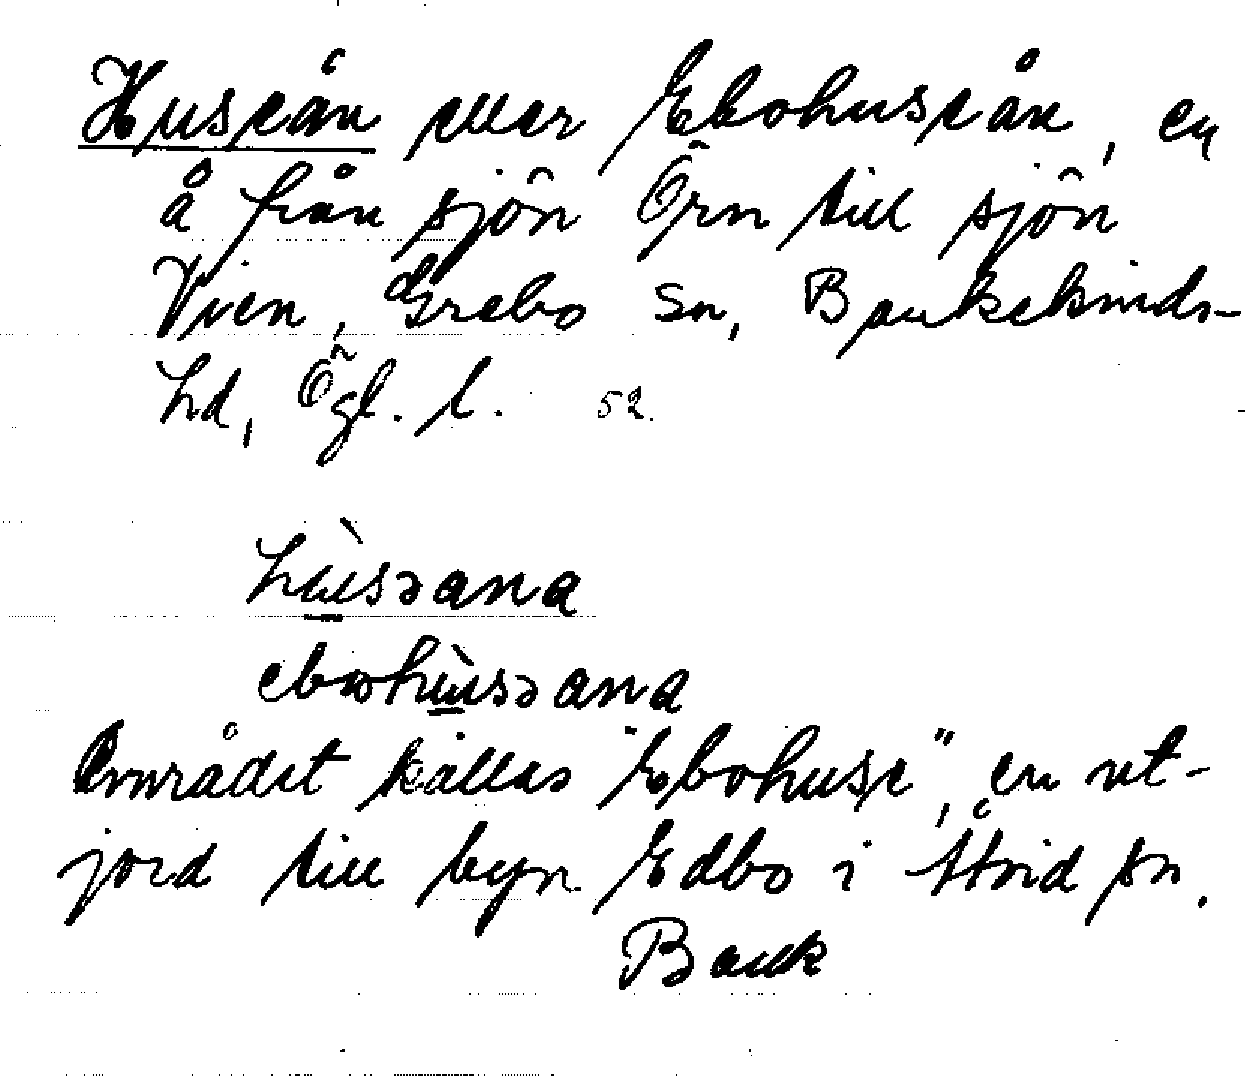 Huseån eller Ebohuseån, en
å från sjön Örn till sjön
Vien, Grebo sn, Bankekinds-
hd, Ögl. l. 52.
hùsəana
ebωhùsəana
Området kallas "Ebohuse", en ut-
jord till byn Edbo i Åtvid sn.
Bank